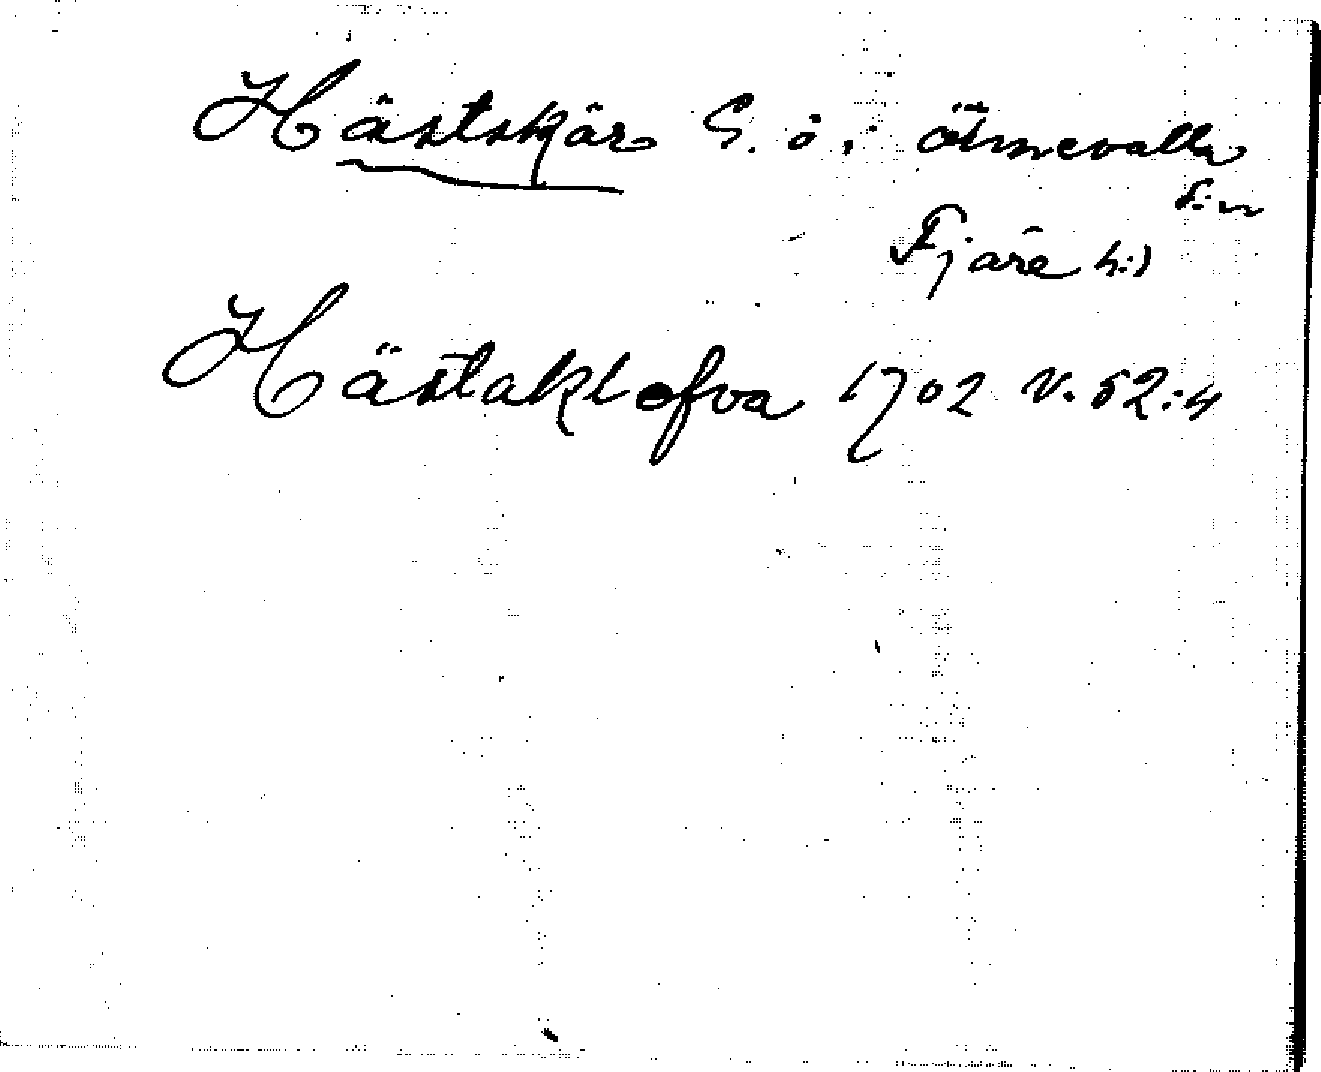 Hästskär S. ö. i Ölmevalla
s:n
Fjäre h:d
Hästaklofva 1702 V. 52:4